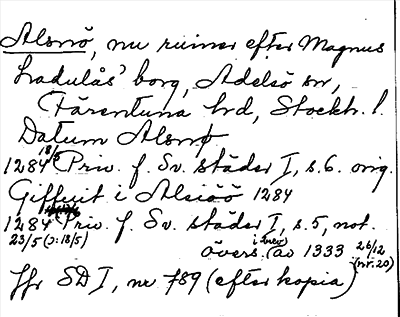 Alsnö, nu ruiner efter Magnus
Ladulås' borg, Adelsö sn,
Färentuna hd, Stockh. l.
Datum Alsnø
1284 18/5 Priv. f. Sv. städer I, s.6. orig.
Giffuit i Alsiöö 1284
1284 Priv. f. Sv. städer I, s.5, not.
23/5 (ɔ: 18/5)
övers. i brev av 1333 26/12 (nr. 20)
Jfr SD I, nr 789 (efter kopia)